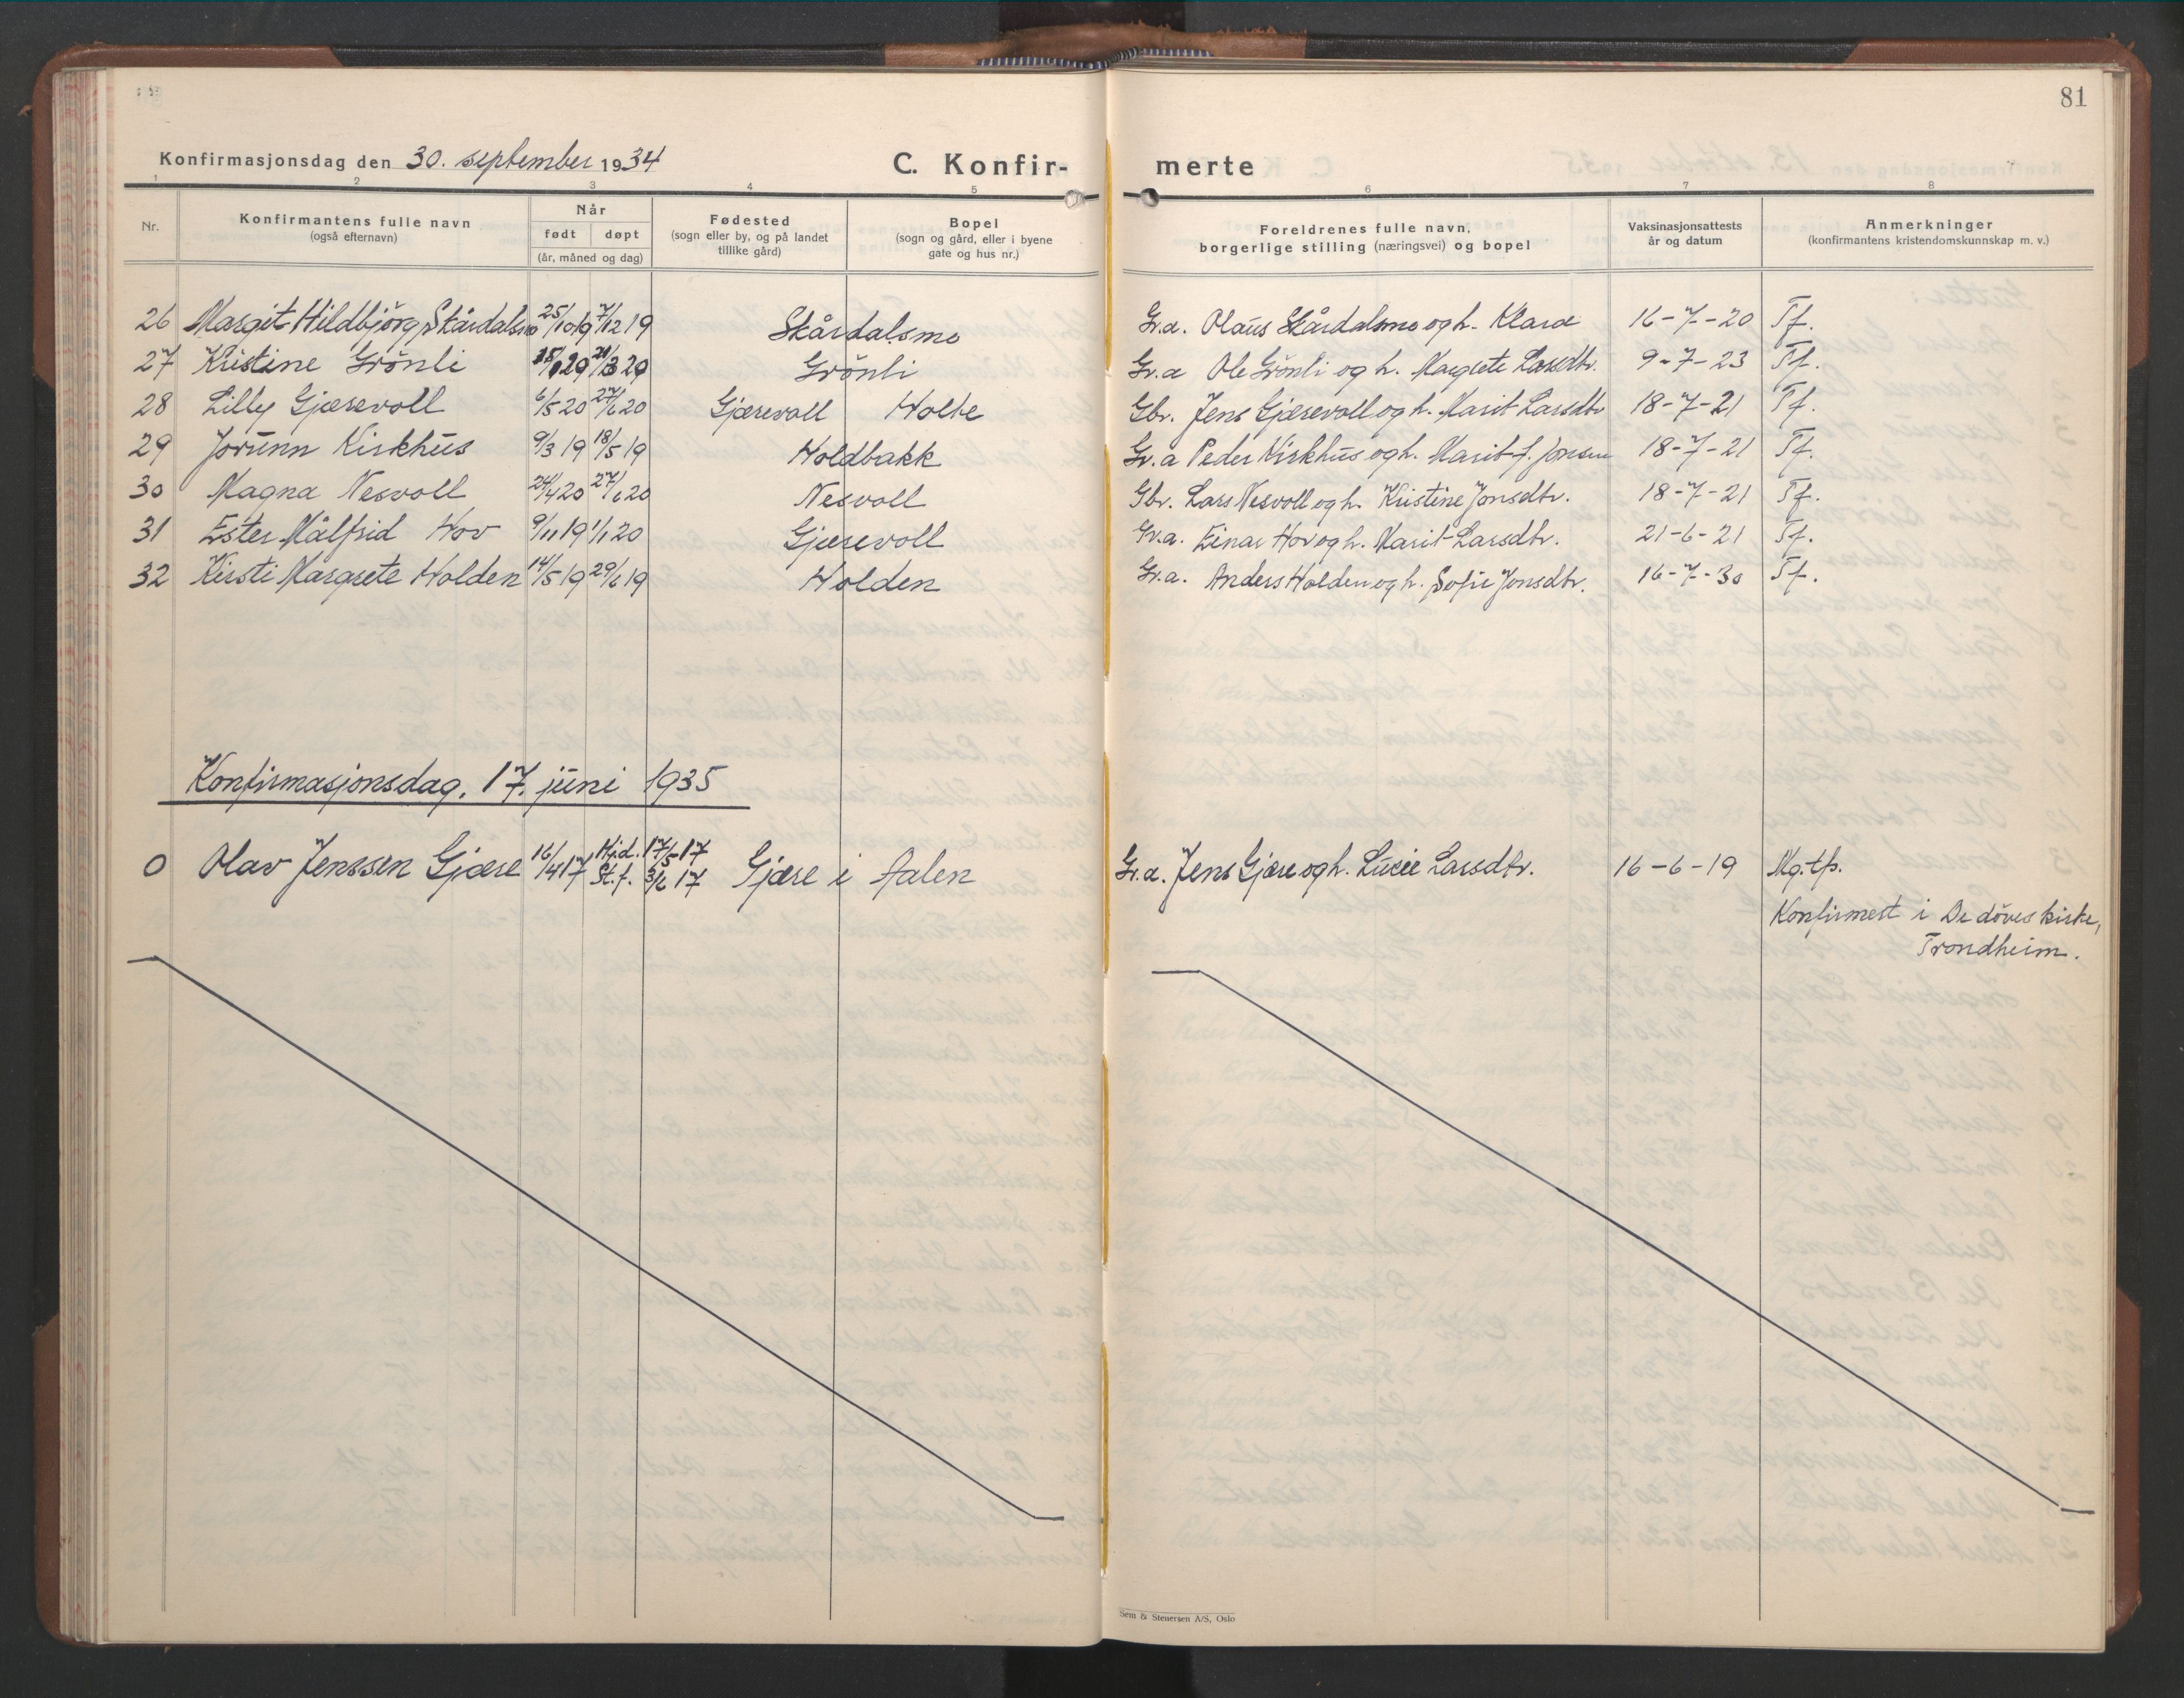 81
Konfirmasjonsdag den 30. september 1934
C. Konfir-
merte
1 2 3 4 5 6 7 8
Nr.
Konfirmantens fulle navn
(også efternavn)
Når
født døpt
(år, måned og dag)
Fødested
(sogn eller by, og på landet
tillike gård)
Bopel
(sogn og gård, eller i byene
gate og hus nr.)
Foreldrenes fulle navn,
borgerlige stilling (næringsvei) og bopel
Vaksinasjonsattests
år og datum
Anmerkninger
(konfirmantens kristendomskunnskap m. v.)
26 Margit Hildbjörg Skårdalsmo 25/10 19 7/12 19 Skårdalsmo Gr.a. Olaus Skårdalsmo og h. Klara 16-7-20 Tf.
27 Kristine Grönli 20 20 Grönli Gr.a Ole Grönli og h. Margrete Larsdtr. 9-7-23 Tf.
28 Lilly Gjæresvoll 6/5 20 27/6 20 Gjæresvoll Holte Gbr. Jens Gjæresvoll og h. Marit Larsdtr 18-7-21 Tf.
29 Jorunn Kirkhus 9/3 19 18/5 19 Holdbakk Gr.a Peder Kirkhus og h. Marit J. Jonsen 18-7-21 Tf.
30 Magna Nesvoll 24/4 20 27/6 20 Nesvoll Gbr. Lars Nesvoll og h. Kristine Jonsdtr. 18-7-21 Tf.
31 Ester Målfrid Hov 9/11 19 1/1 20 Gjæresvoll Gr.a. Einar Hov og h. Marit Larsdtr. 21-6-21 Tf.
32 Kirsti Margrete Holden 14/5 19 29/6 19 Holden Gr.a. Anders Holden og h. Sofie Jonsdtr. 16-7-30 Tf.
Konfirmasjonsdag. 17. juni 1935
0 Olav Jenssen Gjære 16/4 17 Hjd. 17/5 17 St.f. 3/6 17 Gjære i Aalen Gr.a. Jens Gjære og h. Lucie Larsdtr. 16-6-19 Mg.tfs.
Konfirmert i De döves kirke,
Trondheim.
Sem & Stenersen A/S, Oslo